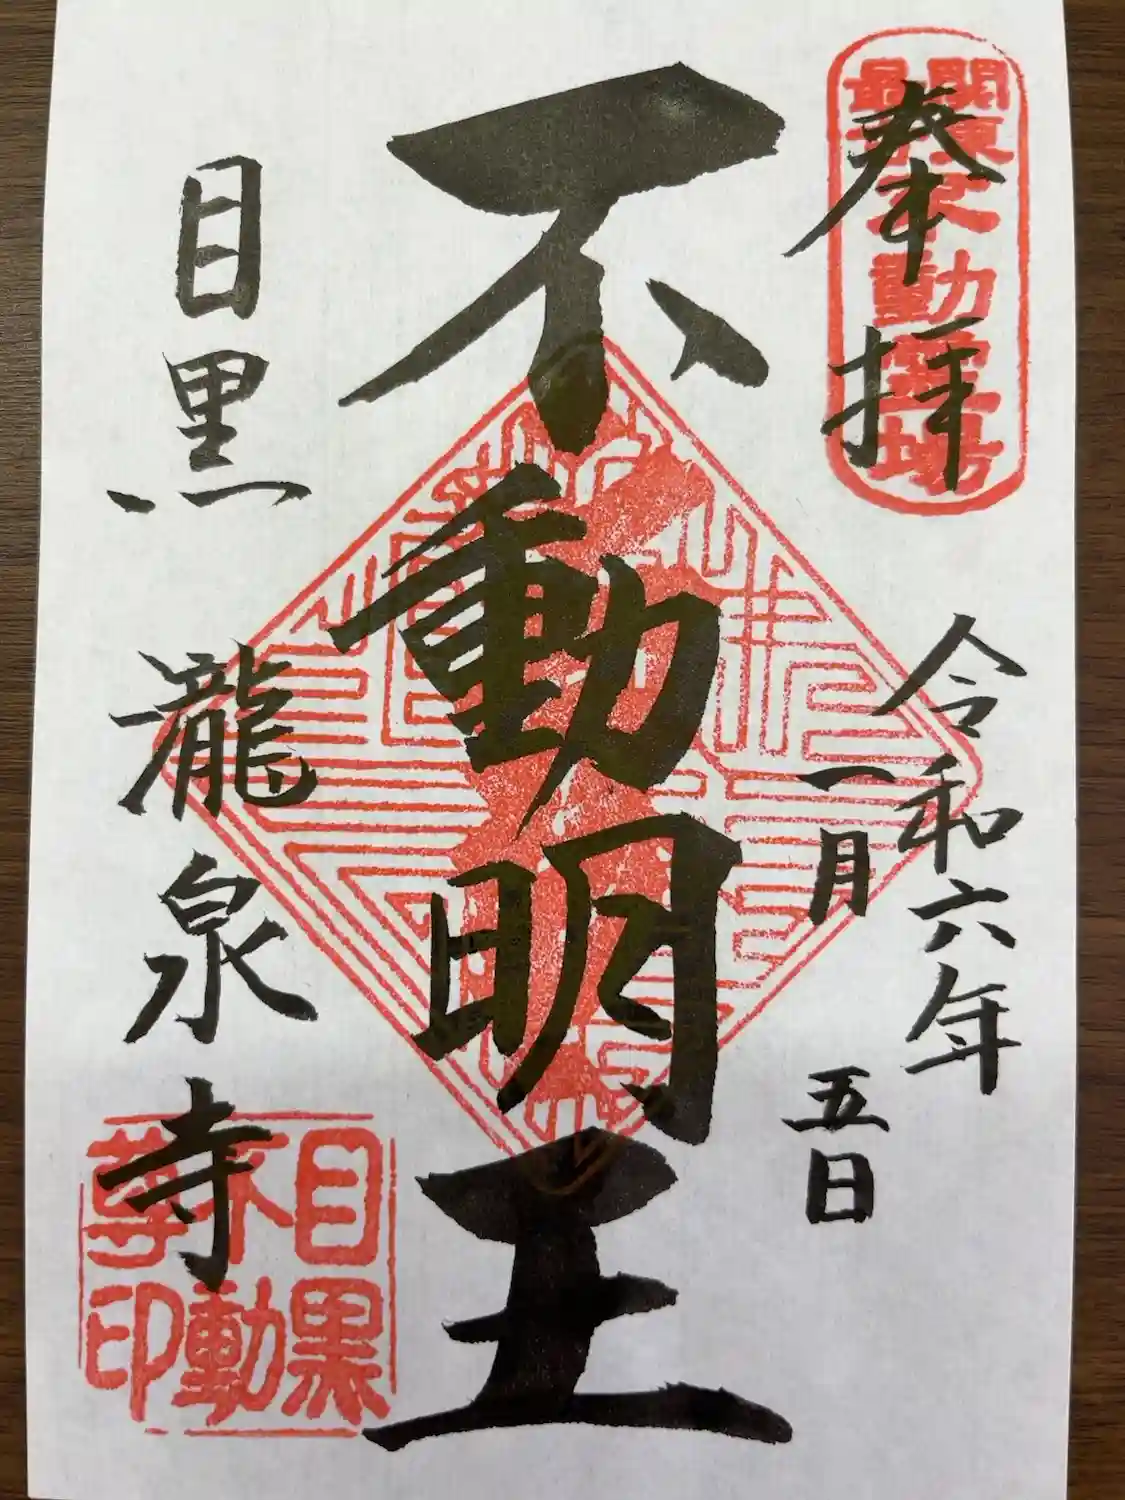 奉拝
関東最古不動霊場
令和六年
一月五日
不動明王
目黒瀧泉寺
目黒
不動
尊印